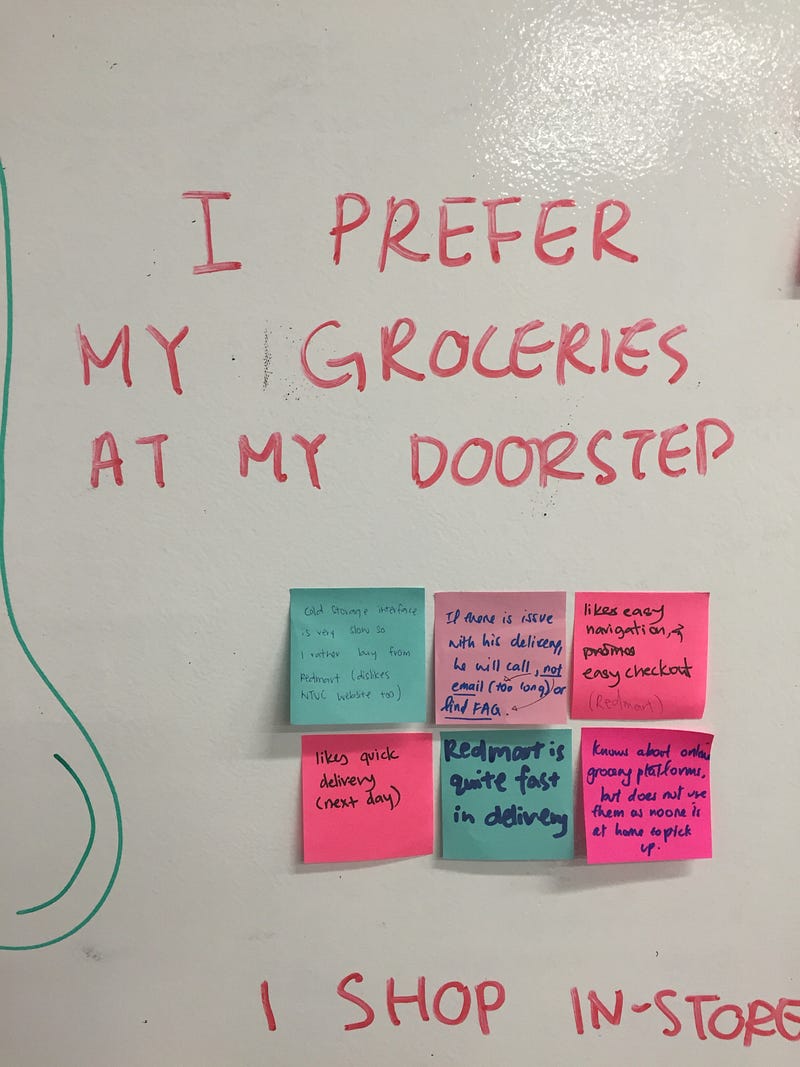 I PREFER
MY GROCERIES
AT MY DOORSTEP
Cold Storage interface
is very slow so
I rather buy from
Redmart (dislikes
NTUC website too)
If there is issue
with his delivery,
he will call, not
email (too long) or
find FAQ.
likes easy
navigation,
promos
easy checkout
(Redmart)
likes quick
delivery
(next day)
Redmart is
quite fast
in delivery
Knows about online
grocery platforms,
but does not use
them as noone is
at home to pick
up.
I SHOP IN-STORE